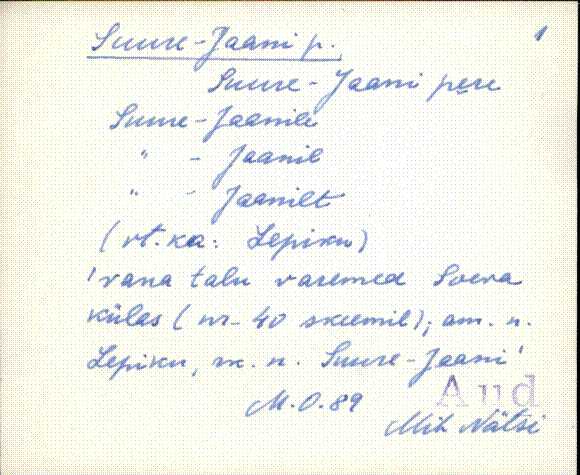 Suure-Jaani p. 1
Suure-Jaani pere
Suure-Jaanile
" - Jaanil
" - Jaanilt
(vt. ka: Lepiku)
'vana talu varemed Soeva
külas (nr- 40 skeemil); am. n.
Lepiku, rk. n. Suure-Jaani'
Aud
M.O.89
Mih Nätsi